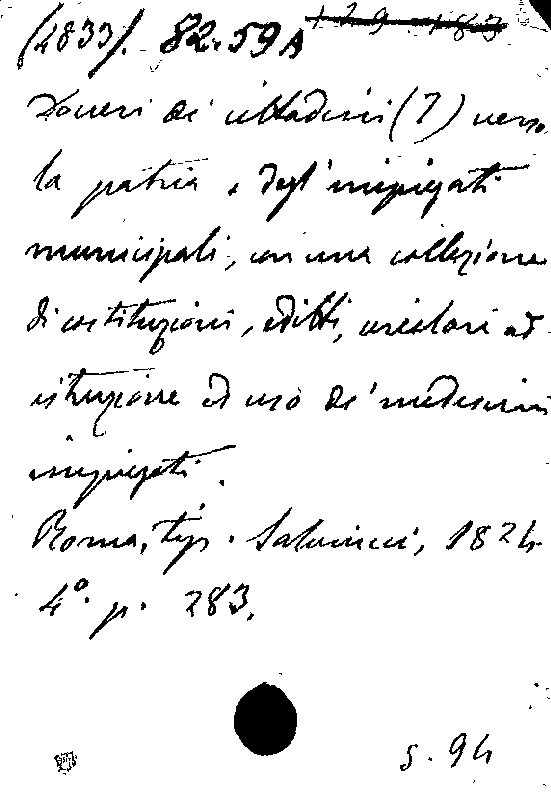 (2833). 82.59A 129 183
Doveri de' cittadini (7) verso
la patria e degl'impiegati
municipali, con una collezione
di costituzioni, editti, circolari ad
istruzione ed uso de' medesimi
impiegati.
Roma, tip. Salviucci, 1824
4°. p. 283.
s. 94